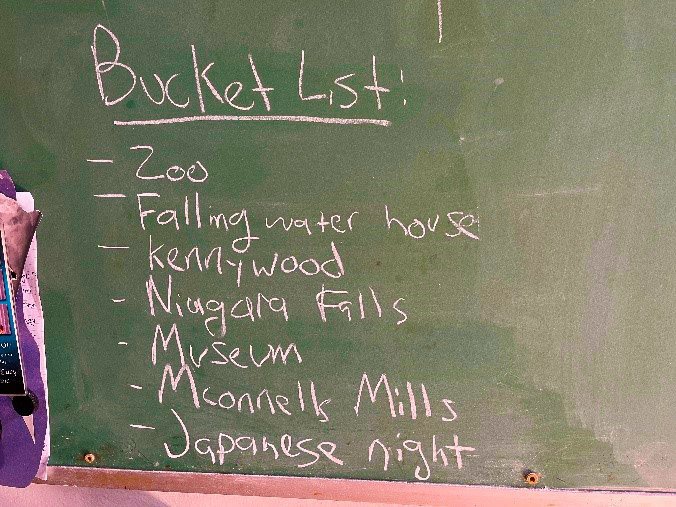 Bucket List:
- Zoo
- Falling water house
- Kennywood
- Niagara Falls
- Museum
- Mconnells Mills
- Japanese night